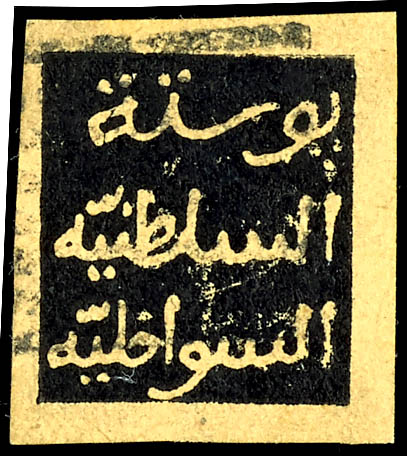 بوستة
السلطنيّه
السواحليّه